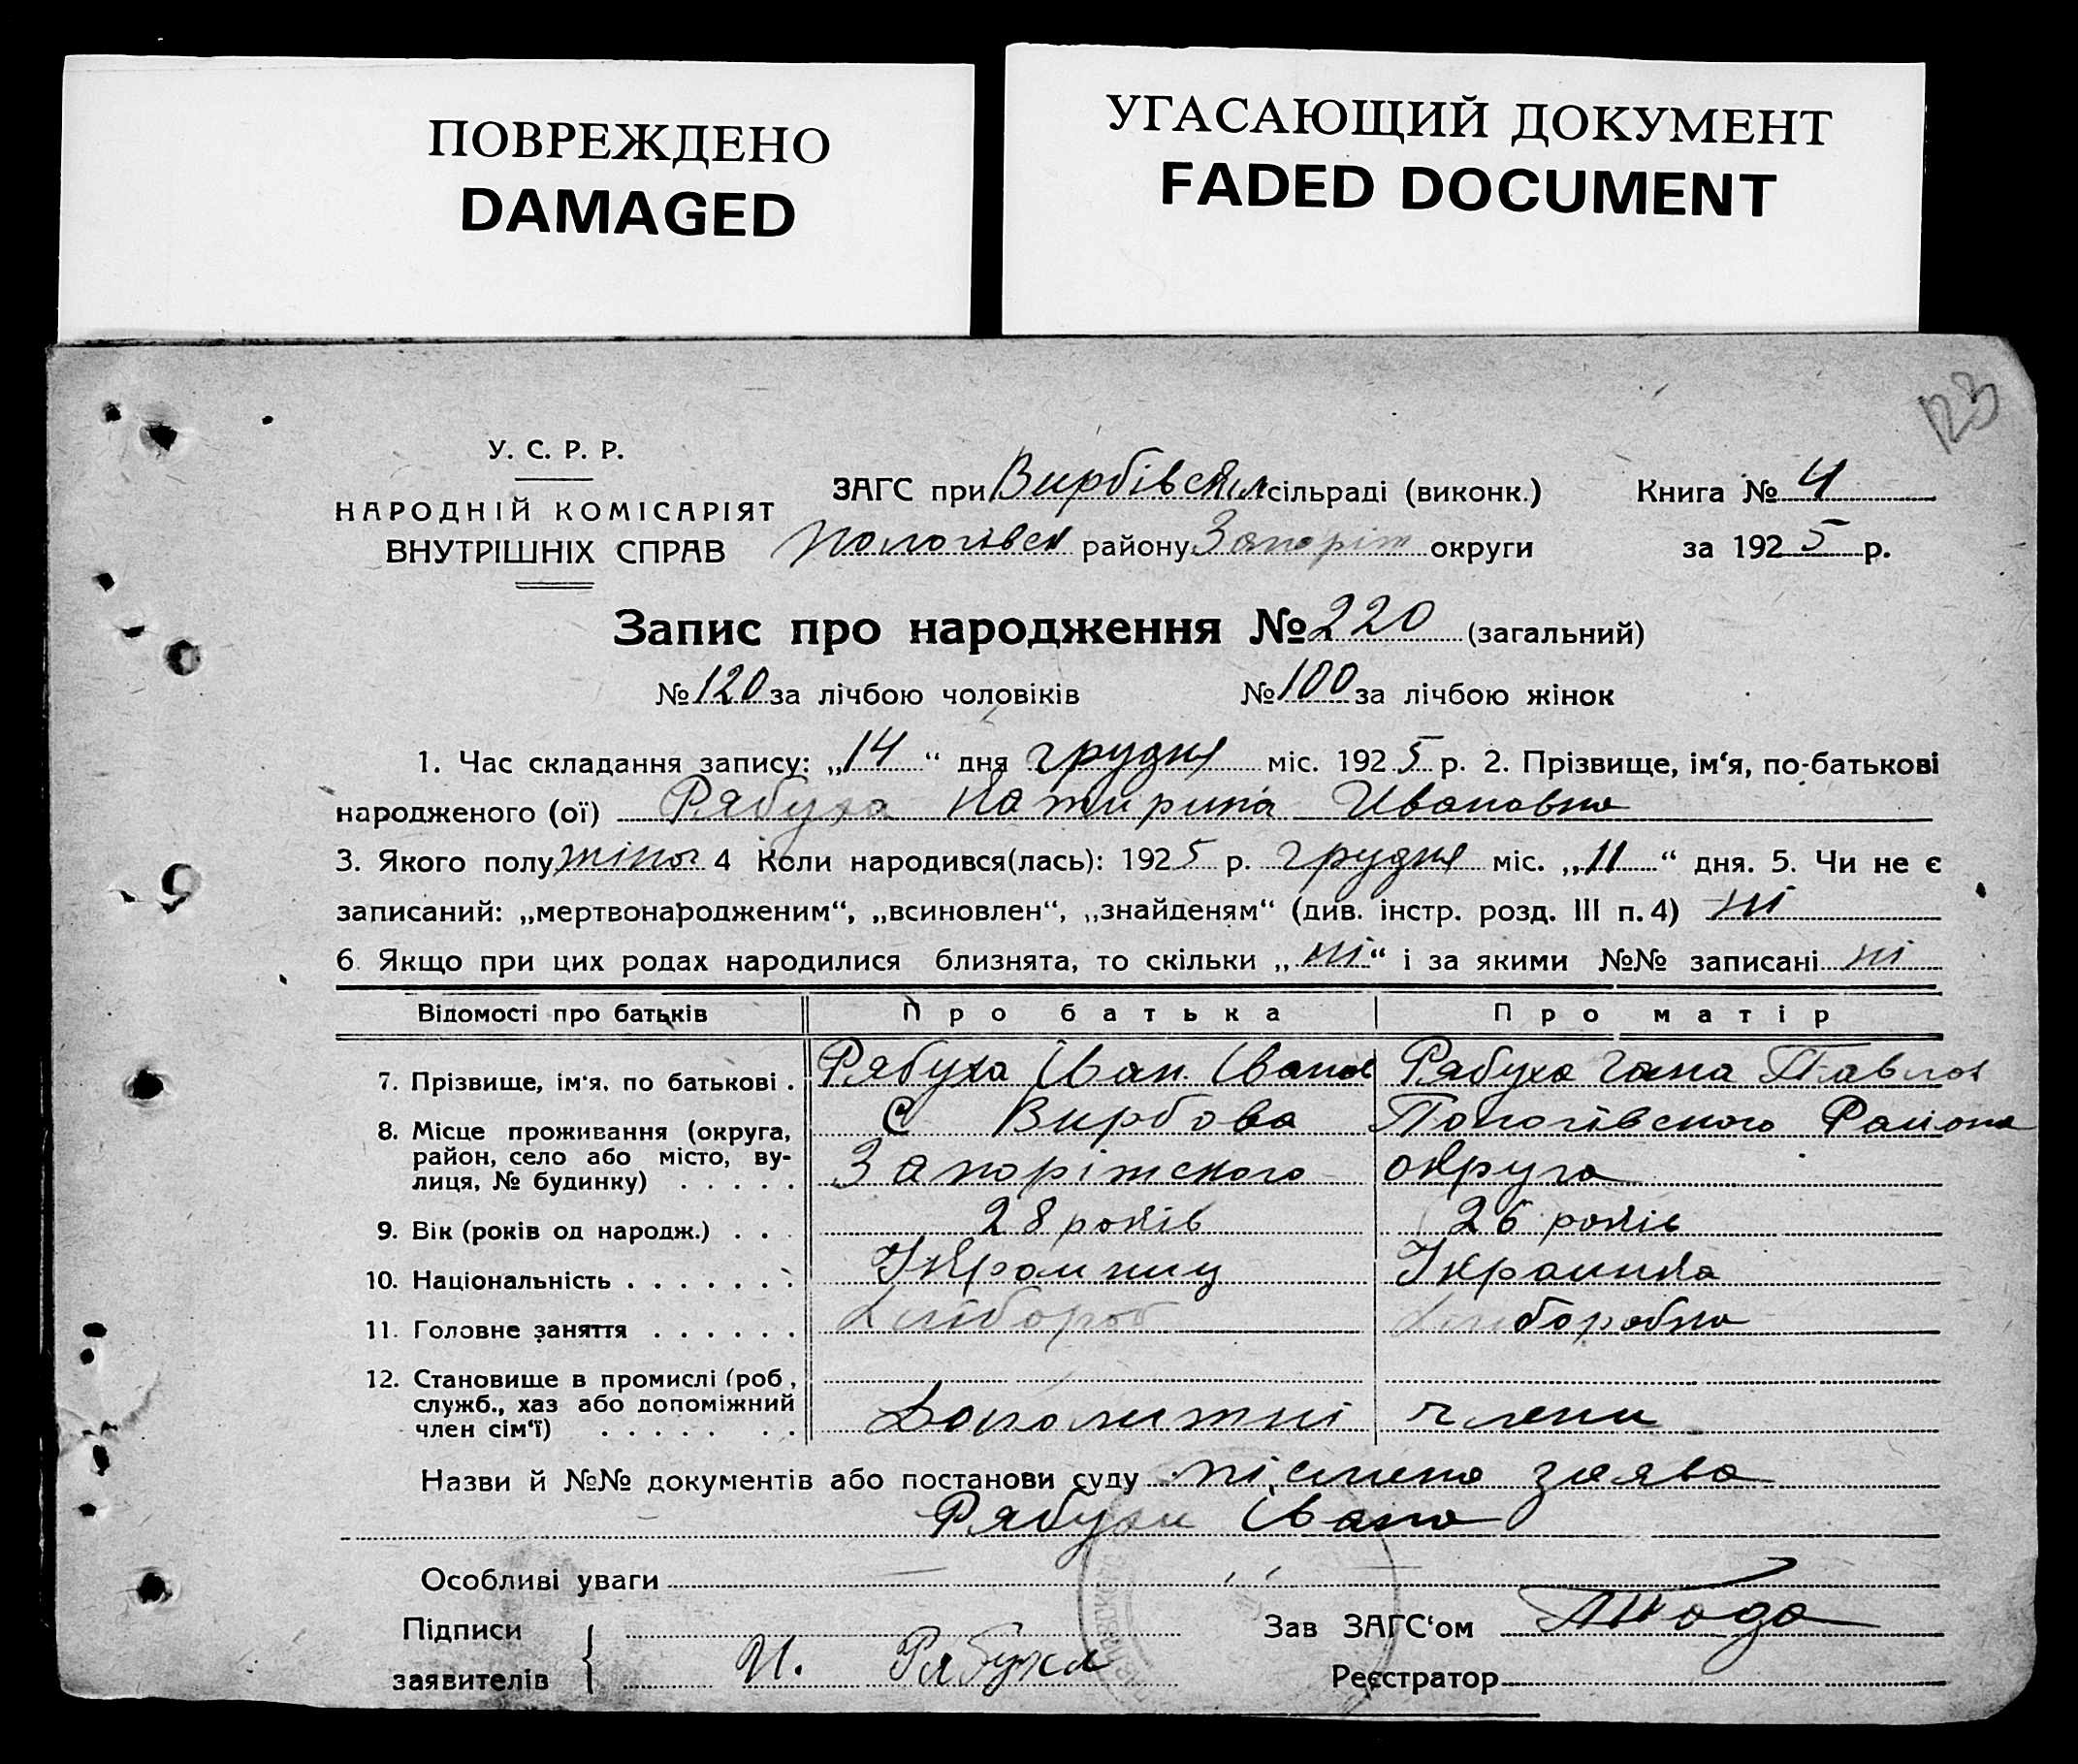 ПОВРЕЖДЕНО
DAMAGED
УГАСАЮЩИЙ ДОКУМЕНТ
FADED DOCUMENT
123
У. С. Р. Р.
НАРОДНІЙ КОМІСАРІЯТ
ВНУТРІШНІХ СПРАВ
ЗАГС при Вирбівскім сільраді (виконк.)
Пологівск району Запоріж округи
Книга № 4
за 1925 р.
Запис про народження № 220 (загальний)
№ 120 за лічбою чоловіків № 100 за лічбою жінок
1. Час складання запису: „14“ дня грудня міс. 1925 р. 2. Прізвище, ім‘я, по-батькові
народженого (ої) Рябуха Катирина Ивановна
3. Якого полу жіноч 4 Коли народився(лась): 1925 р. грудня міс. „11“ дня. 5. Чи не є
записаний: „мертвонародженим“, „всиновлен“, „знайденям“ (див. інстр. розд. III п. 4) ні
6. Якщо при цих родах народилися близнята, то скільки „ні“ і за якими №№ записані ні
Відомості про батьків Про батька Про матір
7. Прізвище, ім‘я, по батькові . Рябуха Іван Іванов Рябуха Гана Павлов
8. Місце проживання (округа, С Вирбова Пологівского Района
район, село або місто, ву-
лиця, № будинку) . . . . . Запоріжского округа
9. Вік (років од народж.) . . . 28 років 26 років
10. Національність . . . . . . . Украинец Украинка
11. Головне заняття . . . . . . Хлібороб Хлiборобка
12. Становище в промислі (роб.,
служб., хаз або допоміжний Допомижні члени
член сім‘ї) . . . . . . .
Назви й №№ документів або постанови суду письмена заява
Рябухи Івана
Особливі уваги
Підписи
заявителів И. Рябуха
Зав ЗАГС‘ом
Реєстратор